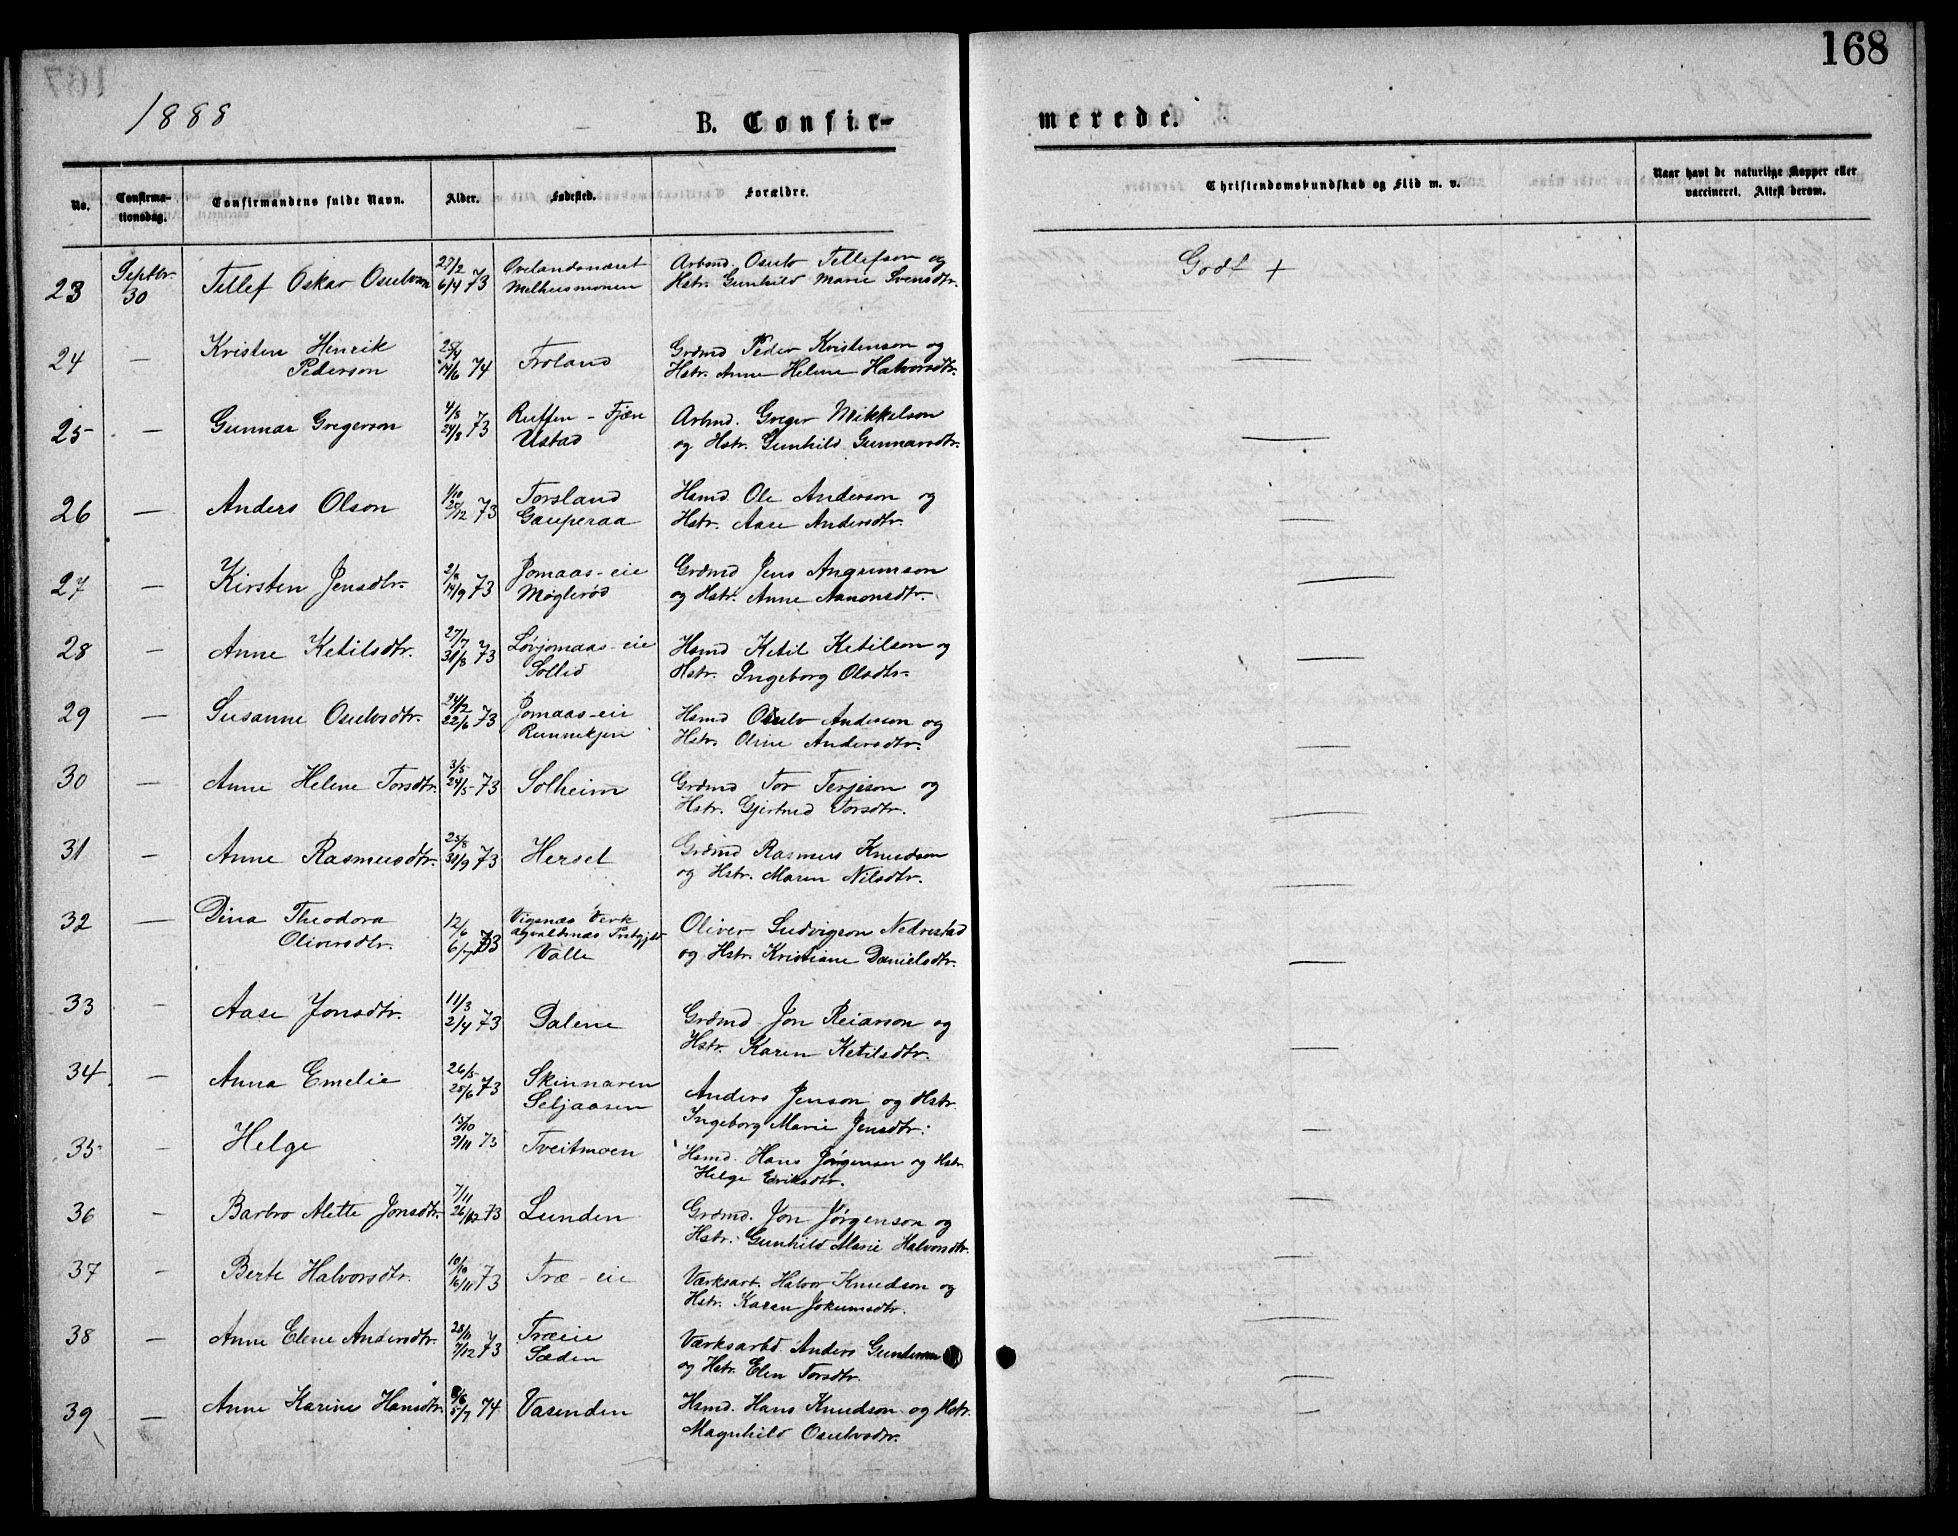 168
1888
B. Confir-
merede.
No.
Confirma-
tionsdag.
Confirmandens fulde Navn.
Alder.
Fødested.
Forældre.
Christendomskundskab og Flid m. v.
Naar havt de naturlige Kopper eller
vaccineret. Attest derom.
23 Septbr. 30 Tellef Oskar Osulvson 27/2 6/4 73 Ovelandsnæset Arbmd. Osulv Tellefson og
Melhusmonen Hstr. Gunhild Marie Svensdtr. Godt +
24 — Kristen Henrik 25/4 Grdmd Peder Kristenson og
Pederson 14/6 74 Froland Hstr. Anne Helene Halvorsdtr. —
25 — Gunnar Gregerson 4/8 24/8 73 Ruffen - Fjære Arbmd. Greger Mikkelson
Ustad og Hstr. Gunhild Gunnarsdtr. —
26 — Anders Olson 1/10 26/12 73 Torsland Hsmd Ole Anderson og
Gauperaa Hstr. Aase Andersdtr. —
27 — Kirsten Jensdtr. 2/8 14/9 73 Jomaas-eie Grdmd Jens Angrimson
Møglerød og Hstr. Anne Aanonsdtr. —
28 — Anne Ketilsdtr. 27/7 31/8 73 Løvjomaas-eie Hsmd Ketil Ketilson og
Sollid Hstr. Ingeborg Olsdtr. —
29 — Susanne Osulvsdtr. 24/2 22/6 73 Jomaas-eie Hsmd Osulv Anderson og
Runnekjen Hstr. Oline Andersdtr. —
30 — Anne Helene Torsdtr. 3/5 24/5 73 Solheim Grdmd Tor Terjeson og
Hstr. Gjertrud Torsdtr. —
31 — Anne Rasmusdtr. 25/8 73 Hersel Grdmd Rasmus Knudson
og Hstr. Maren Nilsdtr. —
32 — Dina Theodora 12/6 Vigsnæs Verk Oliver Ludvigson Nedrestad
Oliversdtr. 6/7 73 Valle og Hstr. Kristiane Danielsdtr. —
33 — Aase Jonsdtr. 11/3 2/4 73 Dalene Grdmd Jon Reiarson og
Hstr. Karen Ketilsdtr. —
34 — Anna Emelie 26/5 25/6 73 Skinnaren Anders Jenson og Hstr.
Seljaasen Ingeborg Marie Jensdtr. —
35 — Helge 15/10 9/11 73 Tveitmoen Hsmd. Hans Jørgensen og Hstr.
Helge Eriksdtr. —
36 — Barbro Alette Jonsdtr. 7/11 26/12 73 Lunden Grdmd. Jon Jørgenson og
Hstr. Gunhild Marie Halvorsdtr. —
37 — Berte Halvorsdtr. 10/10 16/11 73 Træ-eie Værksarb. Halvor Knudson og
Hstr. Karen Jokumsdtr. —
38 — Anne Elene Andersdtr. 28/11 7/12 73 Træeie Værksarbd. Anders Gunderson
Sæden og Hstr. Elen Torsdtr. —
39 — Anne Karine Hansdtr. 5/7 74 Vasenden Hsmd. Hans Knudson og Hstr.
Magnhild Osulvsdtr. —